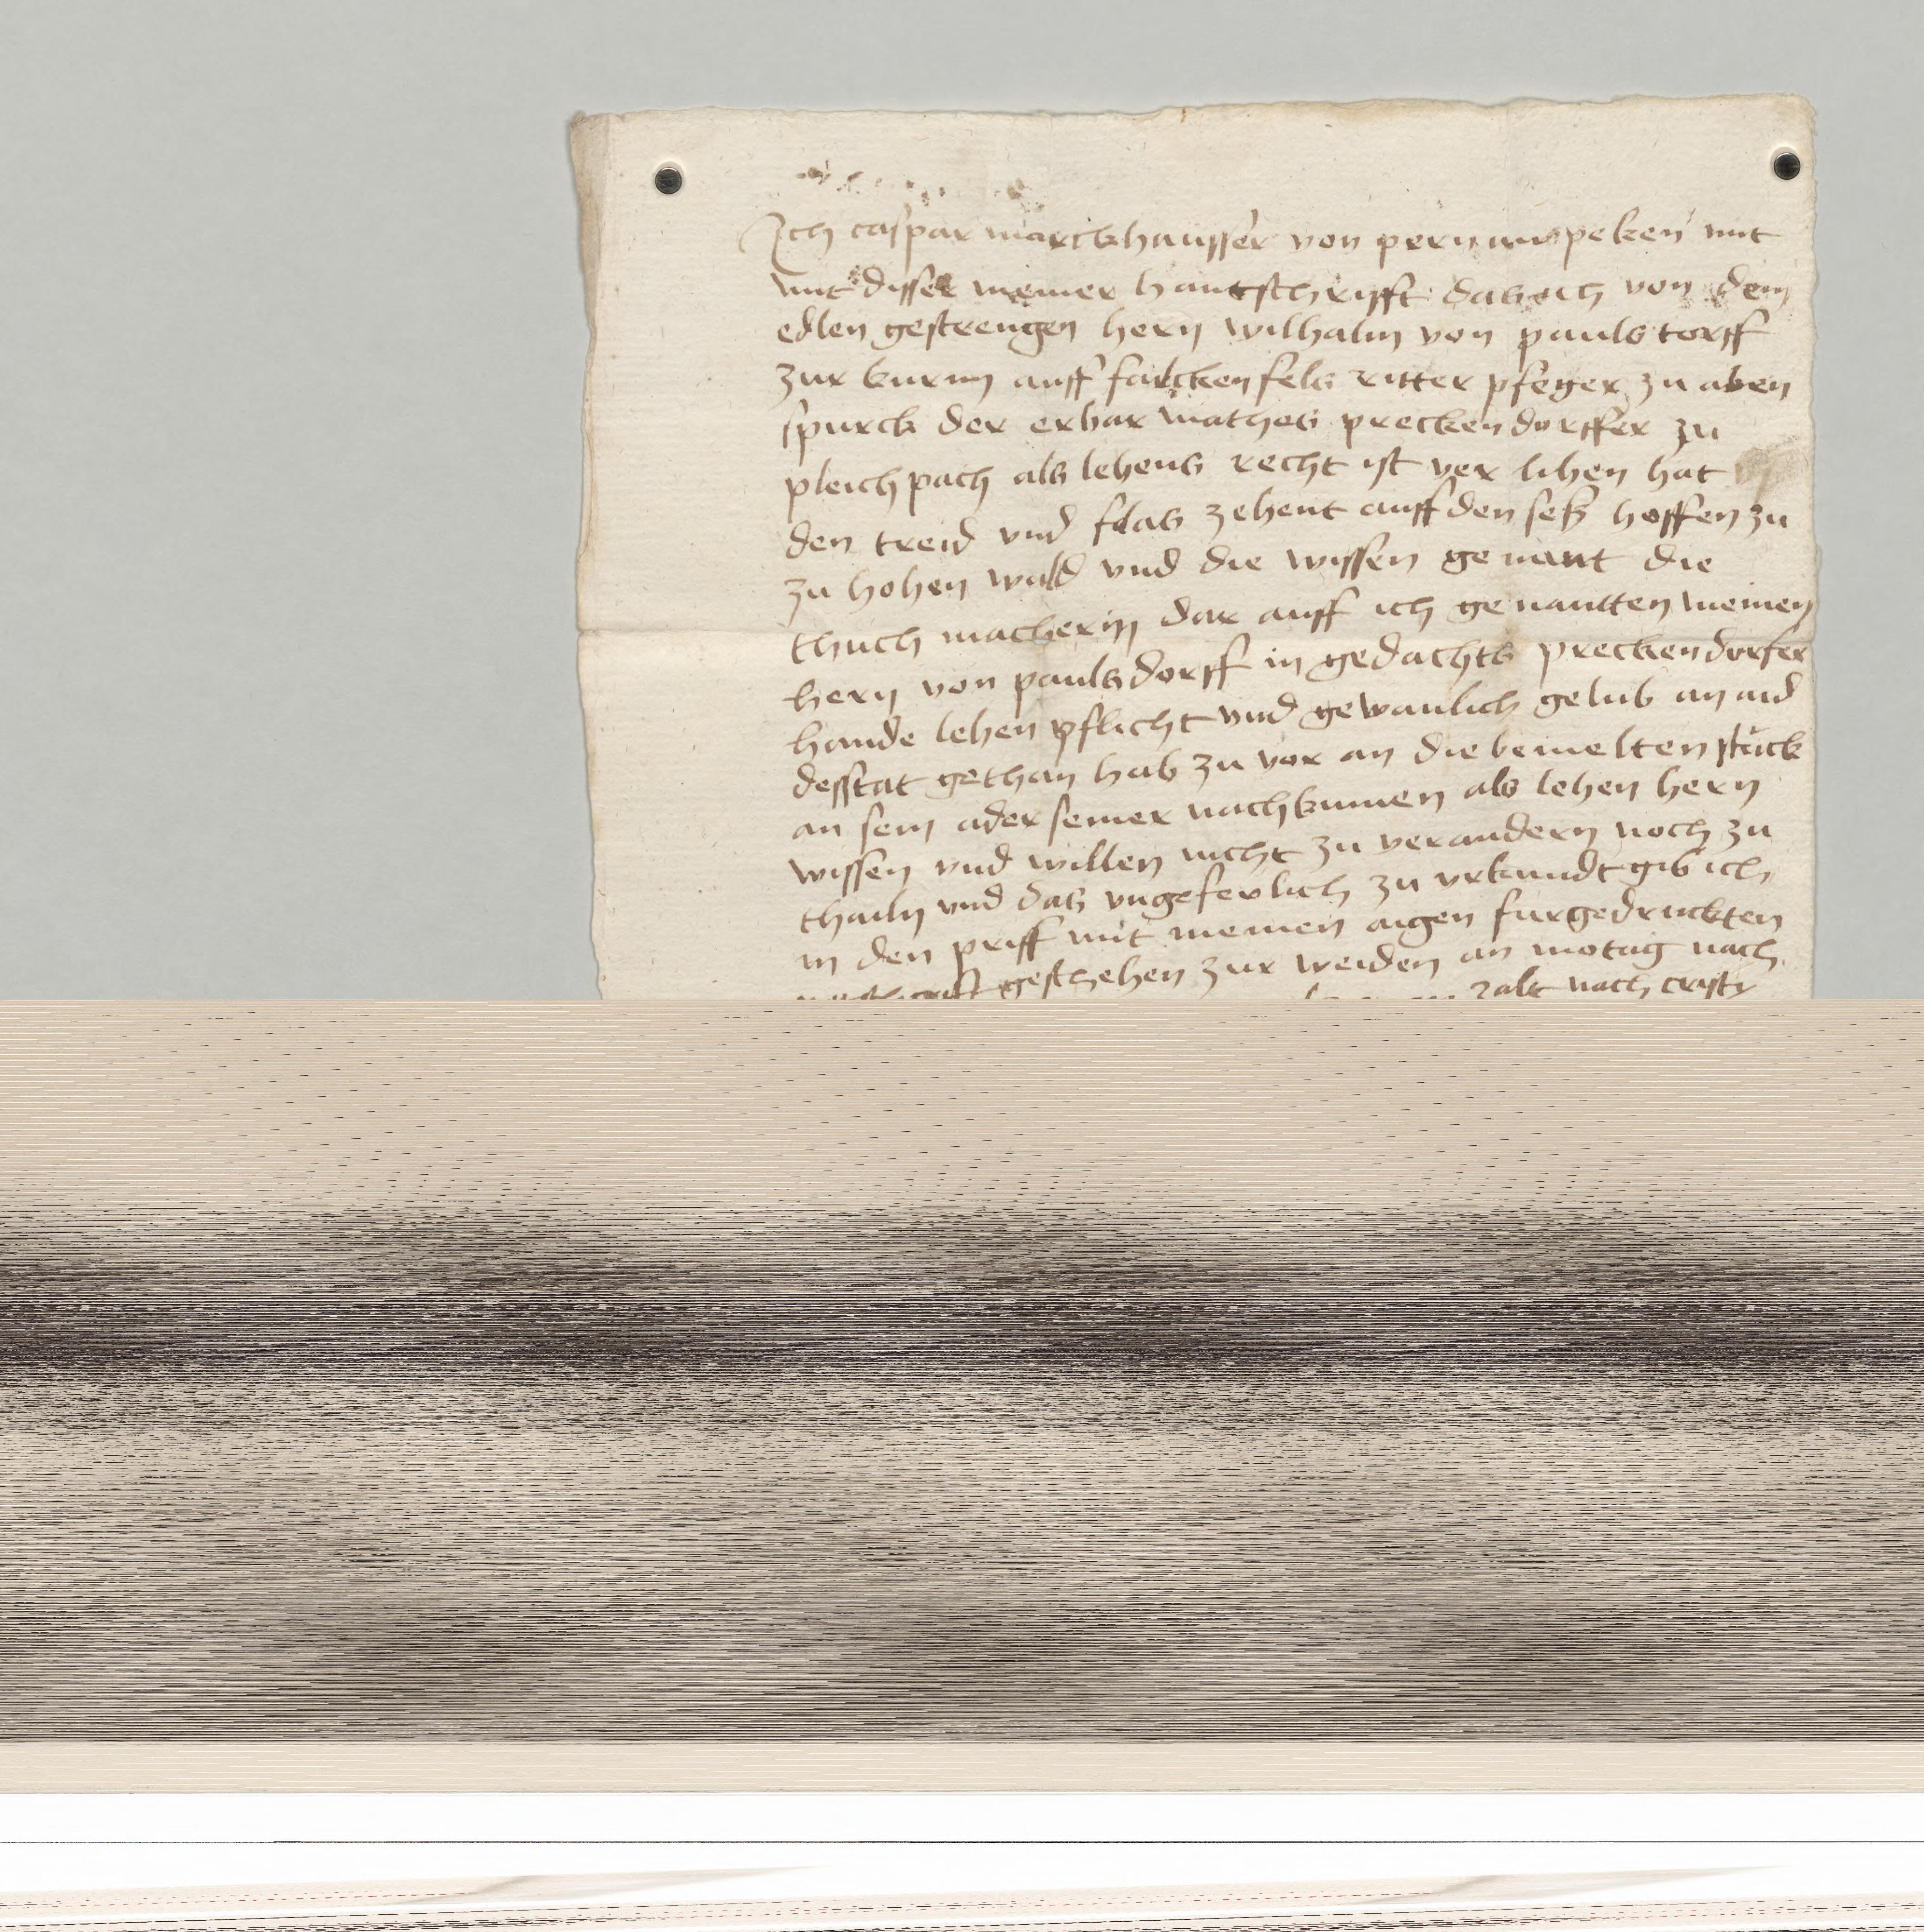 Ich caspar marckhausser von pernnwspeken mit
mit disser meiner hantschryfft das ich von dem
edlen gestrengen hern wilhalm von paulstorff
zur kurnn auff falckenfels ritter pfleger zu aben
spurck der erbar mathes preckendorffer zu
pleichpach als lehens recht ist ver lihen hat
den treid vnd flas zehent auff den sesz hoffen zu
zu hohen wald vnd die wissen ge nant die
thuch macherin dar auff ich ge nantten meinen
hern von paulsdorff in gedachts preckendorfer
hande lehen pflicht vnd gewanlich gelub an aid
desstat gethan hab zu vor an die bemelten stuck
an sein ader seiner nachkumen als lehen hern
wissen vnd willen nicht zu verandern noch zu
thailn vnd das vngeferlich zu vrkundt gib ich
in den priff mit meinen aigen furgedruckten
geschehen zur weiden an motag nach
zalt nach cristy